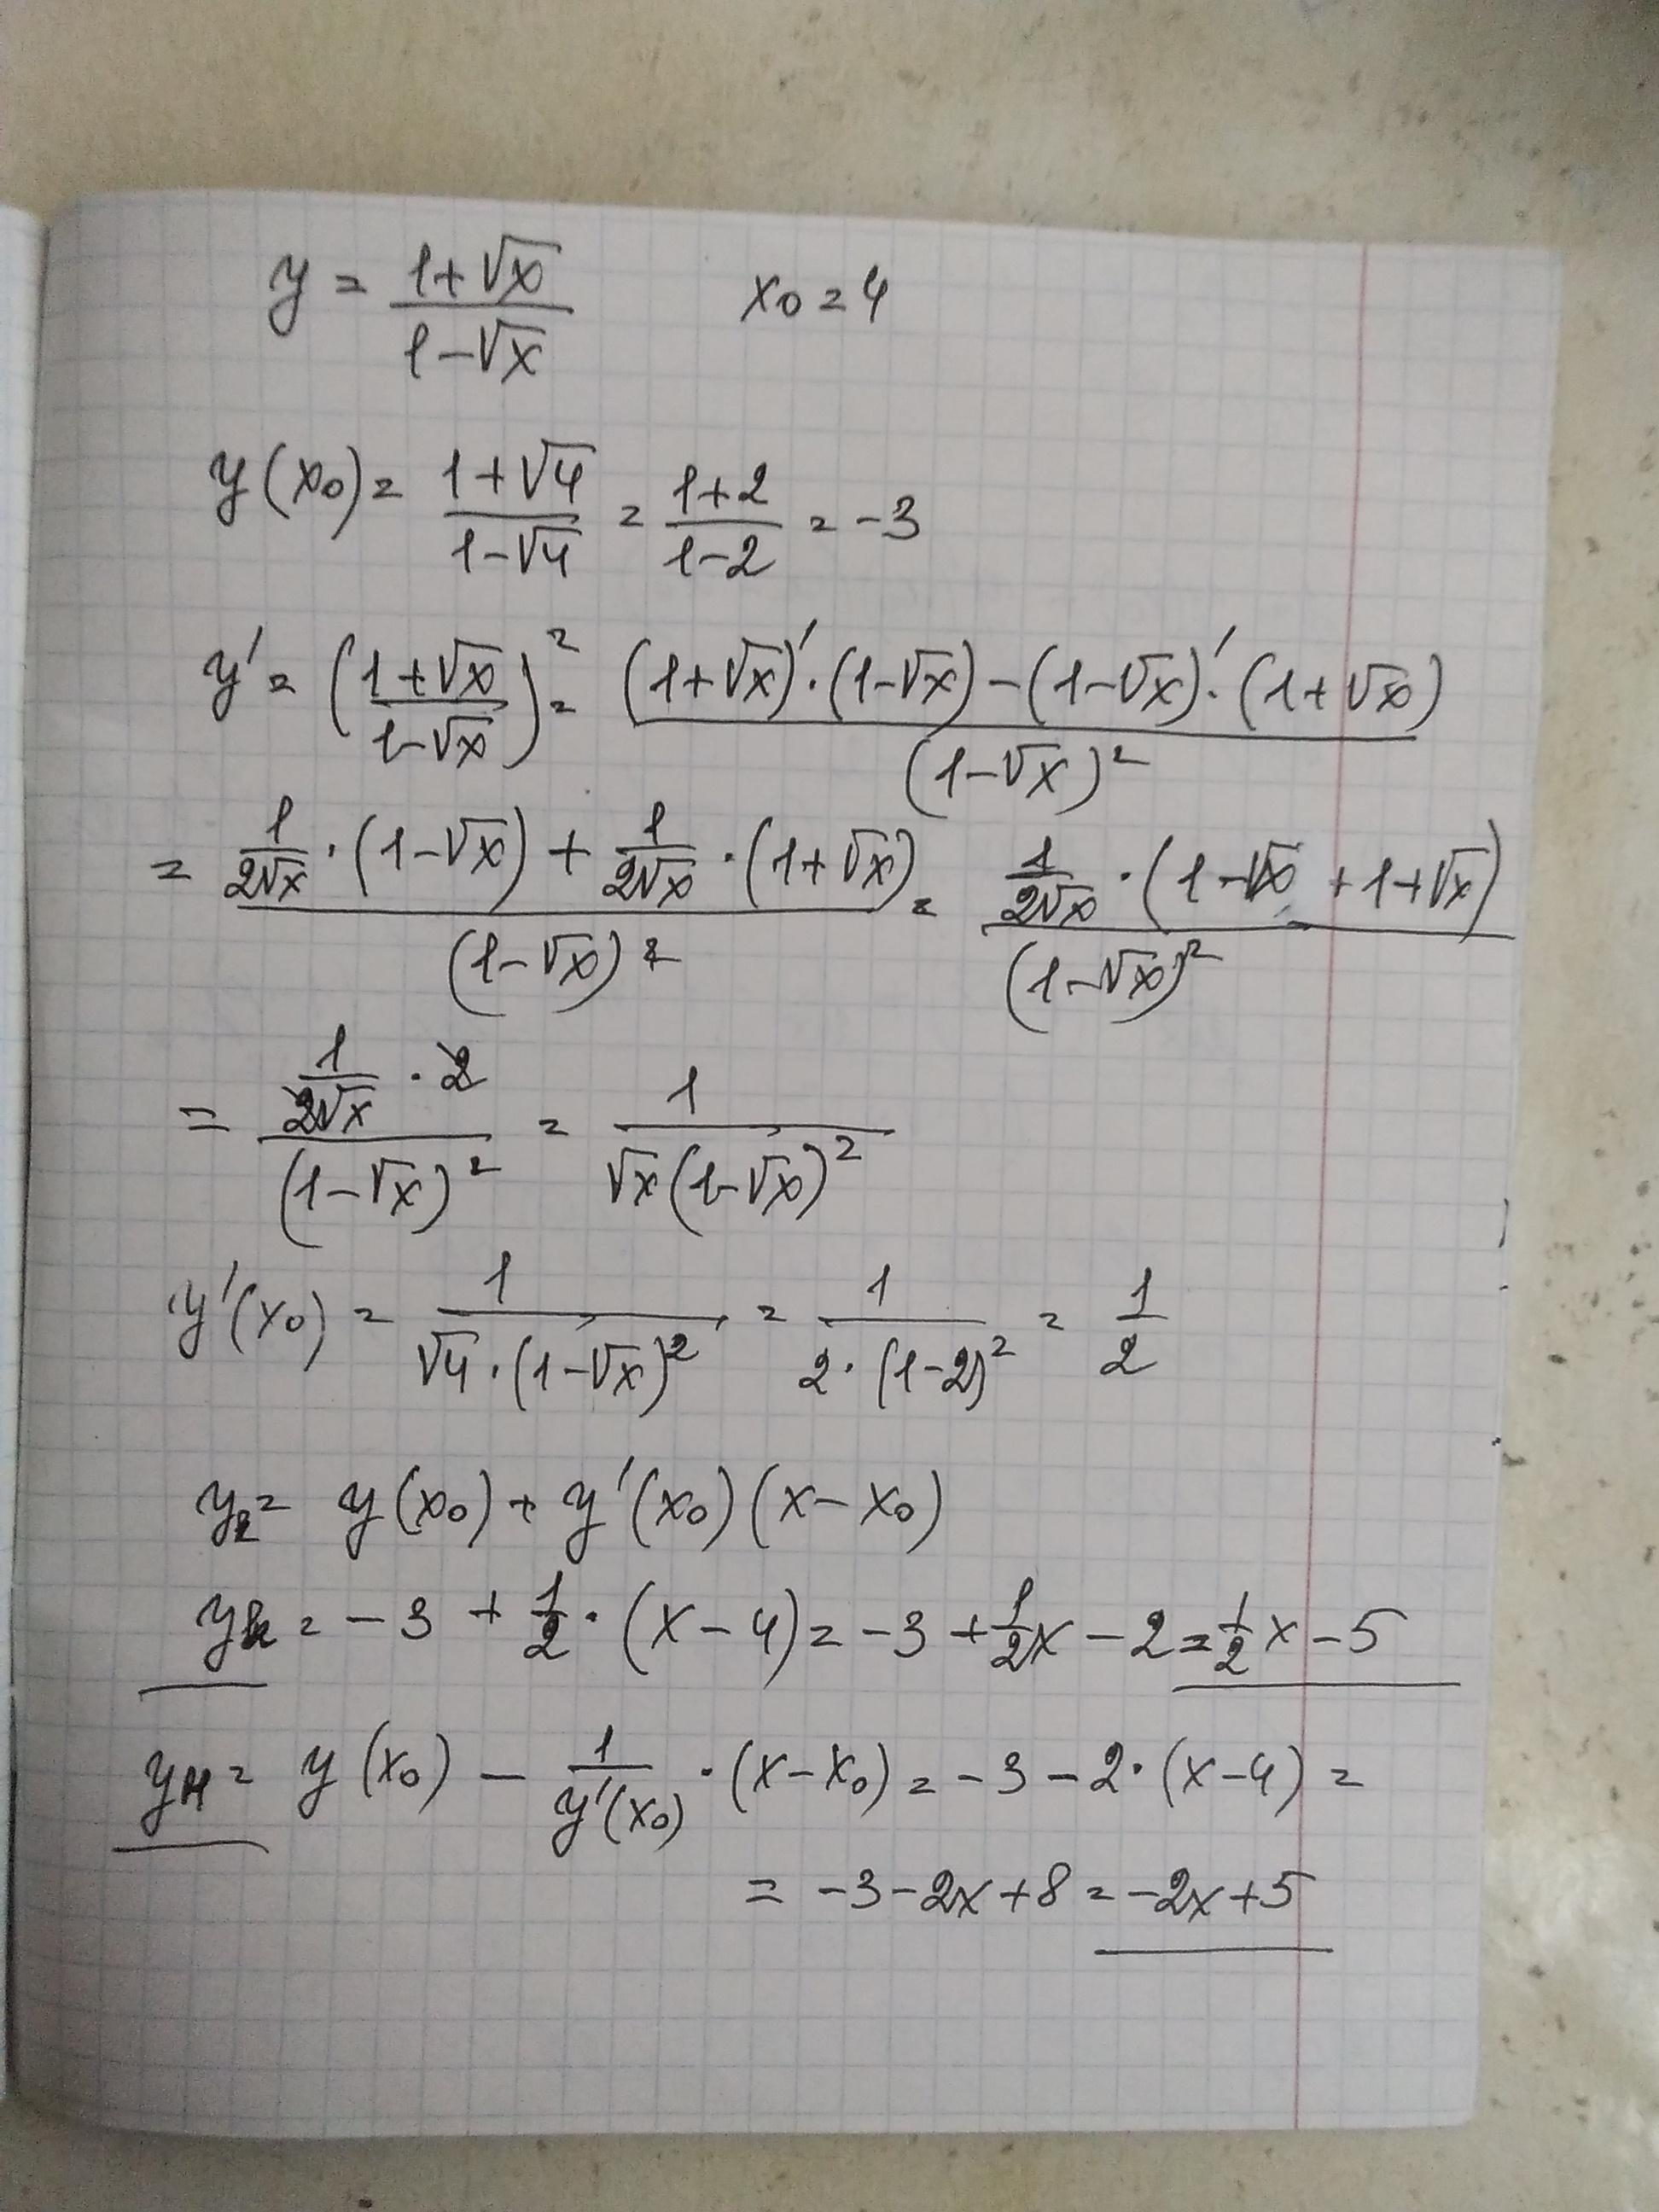 y = (1+√x)/(1-√x)   x₀ = 4
y(x₀) = (1+√4)/(1-√4) = (1+2)/(1-2) = -3
y' = ((1+√x)/(1-√x))² = ((1+√x)'·(1-√x)-(1-√x)'·(1+√x))/(1-√x)²
= (1/(2√x)·(1-√x)+1/(2√x)·(1+√x))/(1-√x)² = (1/(2√x)·(1-√x+1+√x))/(1-√x)²
= (1/(2√x)·2)/(1-√x)² = 1/(√x(1-√x)²)
y'(x₀) = 1/(√4·(1-√x)²) = 1/(2·(1-2)²) = 1/2
yк = y(x₀) + y'(x₀)(x-x₀)
yк = -3 + 1/2·(x-4) = -3 + 1/2x - 2 = 1/2x - 5
yн = y(x₀) - 1/y'(x₀)·(x-x₀) = -3-2·(x-4) =
= -3-2x+8 = -2x+5